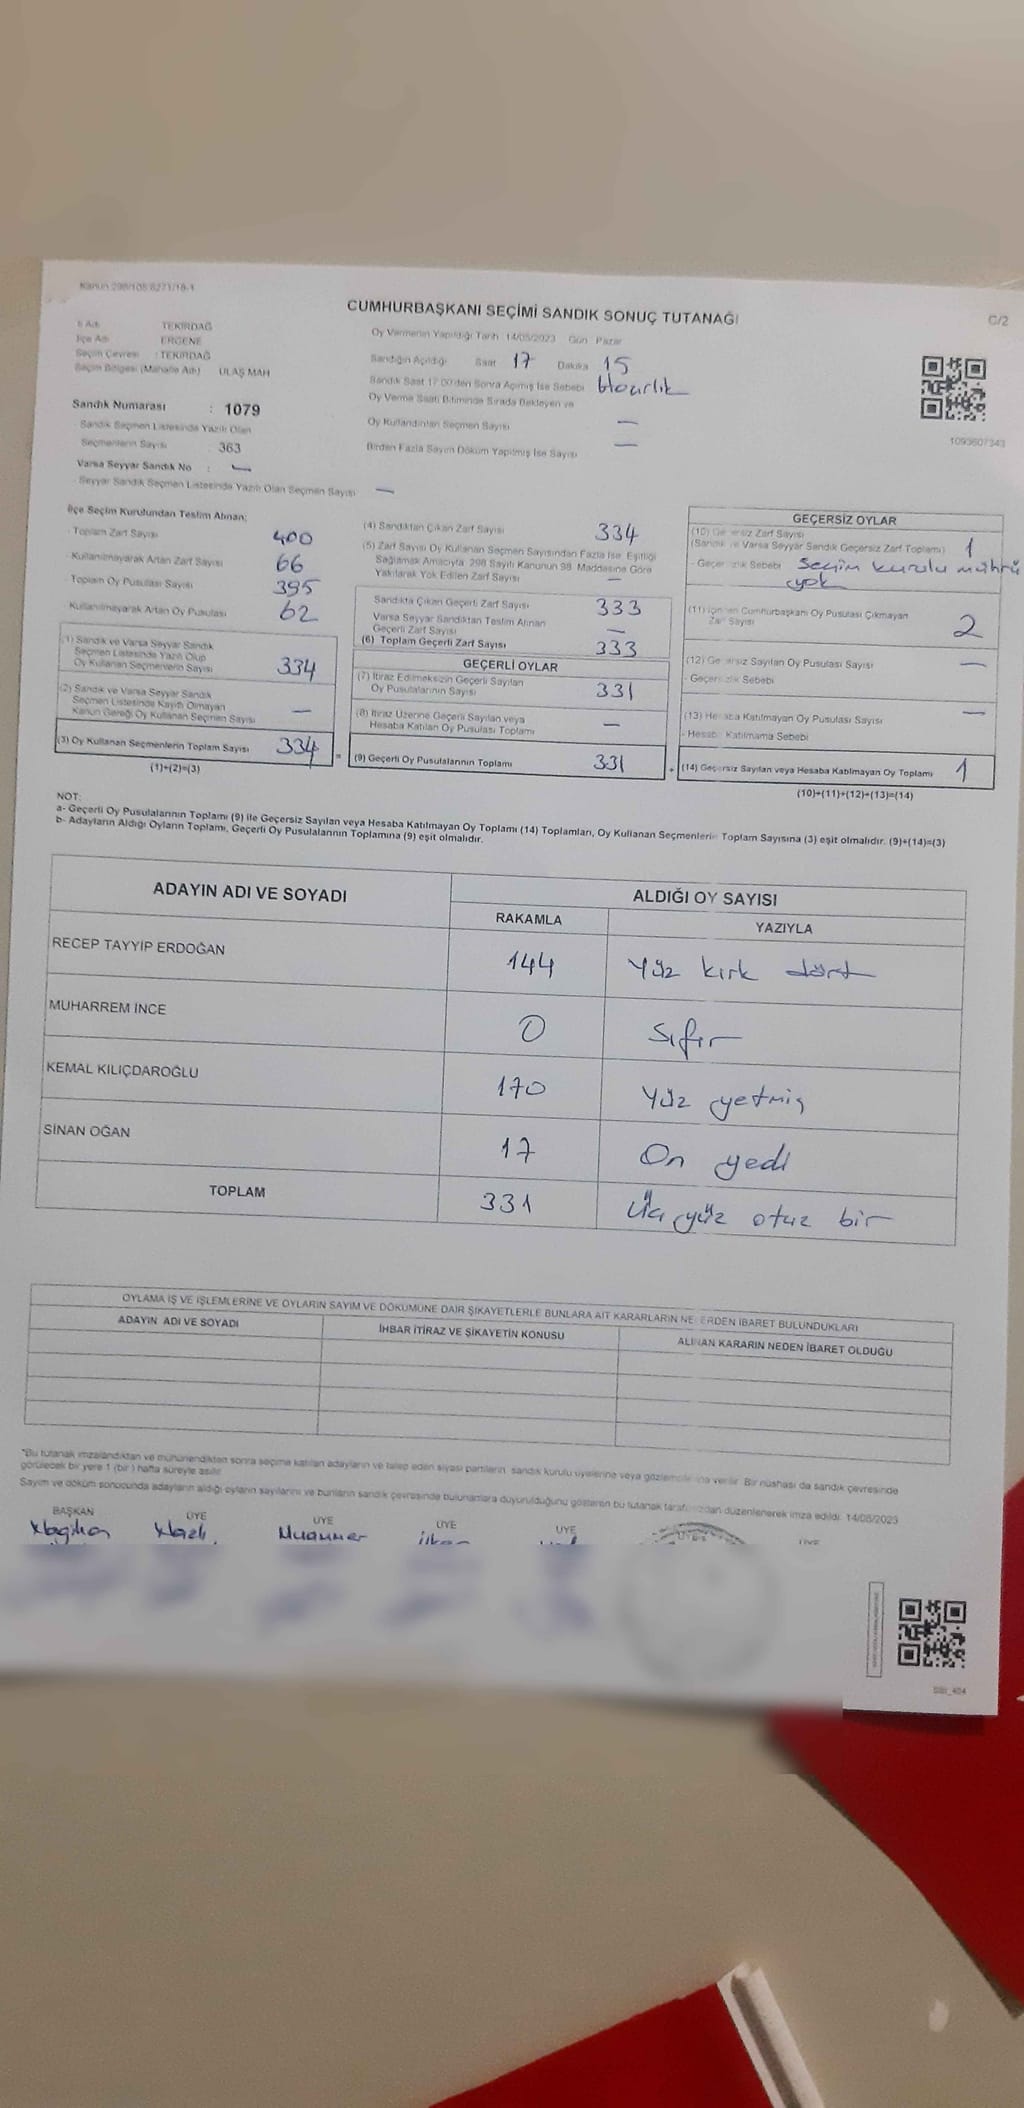 Kanun 298/105 6271/18-1
CUMHURBAŞKANI SEÇİMİ SANDIK SONUÇ TUTANAĞI
C/2
İl Adı TEKİRDAĞ
İlçe Adı ERGENE
Seçim Çevresi : TEKİRDAĞ
Seçim Bölgesi (Mahalle Adı) ULAŞ MAH
Sandık Numarası : 1079
Sandık Seçmen Listesinde Yazılı Olan
Seçmenlerin Sayısı 363
Varsa Seyyar Sandık No : —
Seyyar Sandık Seçmen Listesinde Yazılı Olan Seçmen Sayısı —
Oy Vermenin Yapıldığı Tarih 14/05/2023 Gün Pazar
Sandığın Açıldığı Saat 17 Dakika 15
Sandık Saat 17:00'den Sonra Açılmış İse Sebebi Hazırlık
Oy Verme Saati Bitiminde Sırada Bekleyen ve
Oy Kullandırılan Seçmen Sayısı —
Birden Fazla Sayım Döküm Yapılmış İse Sayısı —
1093607343
İlçe Seçim Kurulundan Teslim Alınan;
Toplam Zarf Sayısı 400
Kullanılmayarak Artan Zarf Sayısı 66
Toplam Oy Pusulası Sayısı 395
Kullanılmayarak Artan Oy Pusulası 62
(1) Sandık ve Varsa Seyyar Sandık
Seçmen Listesinde Yazılı Olup
Oy Kullanan Seçmenlerin Sayısı 334
(2) Sandık ve Varsa Seyyar Sandık
Seçmen Listesinde Kayıtlı Olmayan
Kanun Gereği Oy Kullanan Seçmen Sayısı —
(3) Oy Kullanan Seçmenlerin Toplam Sayısı 334
(1)+(2)=(3)
(4) Sandıktan Çıkan Zarf Sayısı 334
(5) Zarf Sayısı Oy Kullanan Seçmen Sayısından Fazla İse, Eşitliği
Sağlamak Amacıyla 298 Sayılı Kanunun 98. Maddesine Göre
Yakılarak Yok Edilen Zarf Sayısı —
Sandıkta Çıkan Geçerli Zarf Sayısı 333
Varsa Seyyar Sandıktan Teslim Alınan
Geçerli Zarf Sayısı —
(6) Toplam Geçerli Zarf Sayısı 333
GEÇERLİ OYLAR
(7) İtiraz Edilmeksizin Geçerli Sayılan
Oy Pusulalarının Sayısı 331
(8) İtiraz Üzerine Geçerli Sayılan veya
Hesaba Katılan Oy Pusulası Toplamı —
= (9) Geçerli Oy Pusulalarının Toplamı 331
GEÇERSİZ OYLAR
(10) Geçersiz Zarf Sayısı
(Sandık ve Varsa Seyyar Sandık Geçersiz Zarf Toplamı) 1
- Geçersizlik Sebebi Seçim kurulu mührü
yok
(11) İçinden Cumhurbaşkanı Oy Pusulası Çıkmayan
Zarf Sayısı 2
(12) Geçersiz Sayılan Oy Pusulası Sayısı —
- Geçersizlik Sebebi
(13) Hesaba Katılmayan Oy Pusulası Sayısı —
- Hesaba Katılmama Sebebi
+ (14) Geçersiz Sayılan veya Hesaba Katılmayan Oy Toplamı 1
(10)+(11)+(12)+(13)=(14)
NOT:
a- Geçerli Oy Pusulalarının Toplamı (9) ile Geçersiz Sayılan veya Hesaba Katılmayan Oy Toplamı (14) Toplamları, Oy Kullanan Seçmenlerin Toplam Sayısına (3) eşit olmalıdır. (9)+(14)=(3)
b- Adayların Aldığı Oyların Toplamı, Geçerli Oy Pusulalarının Toplamına (9) eşit olmalıdır.
ADAYIN ADI VE SOYADI ALDIĞI OY SAYISI
RAKAMLA YAZIYLA
RECEP TAYYİP ERDOĞAN 144 Yüz kırk dört
MUHARREM İNCE 0 Sıfır
KEMAL KILIÇDAROĞLU 170 Yüz yetmiş
SİNAN OĞAN 17 On yedi
TOPLAM 331 Üç yüz otuz bir
OYLAMA İŞ VE İŞLEMLERİNE VE OYLARIN SAYIM VE DÖKÜMÜNE DAİR ŞİKAYETLERLE BUNLARA AİT KARARLARIN NELERDEN İBARET BULUNDUKLARI
ADAYIN ADI VE SOYADI İHBAR İTİRAZ VE ŞİKAYETİN KONUSU ALINAN KARARIN NEDEN İBARET OLDUĞU
*Bu tutanak imzalandıktan ve mühürlendikten sonra seçime katılan adayların ve talep eden siyasi partilerin, sandık kurulu üyelerine veya gözlemcilerine verilir. Bir nüshası da sandık çevresinde
görülecek bir yere 1 (bir) hafta süreyle asılır.
Sayım ve döküm sonucunda adayların aldığı oyların sayılarını ve bunların sandık çevresinde bulunanlara duyurulduğunu gösteren bu tutanak tarafımızdan düzenlenerek imza edildi. 14/05/2023
BAŞKAN ÜYE ÜYE ÜYE ÜYE ÜYE ÜYE
Muammer